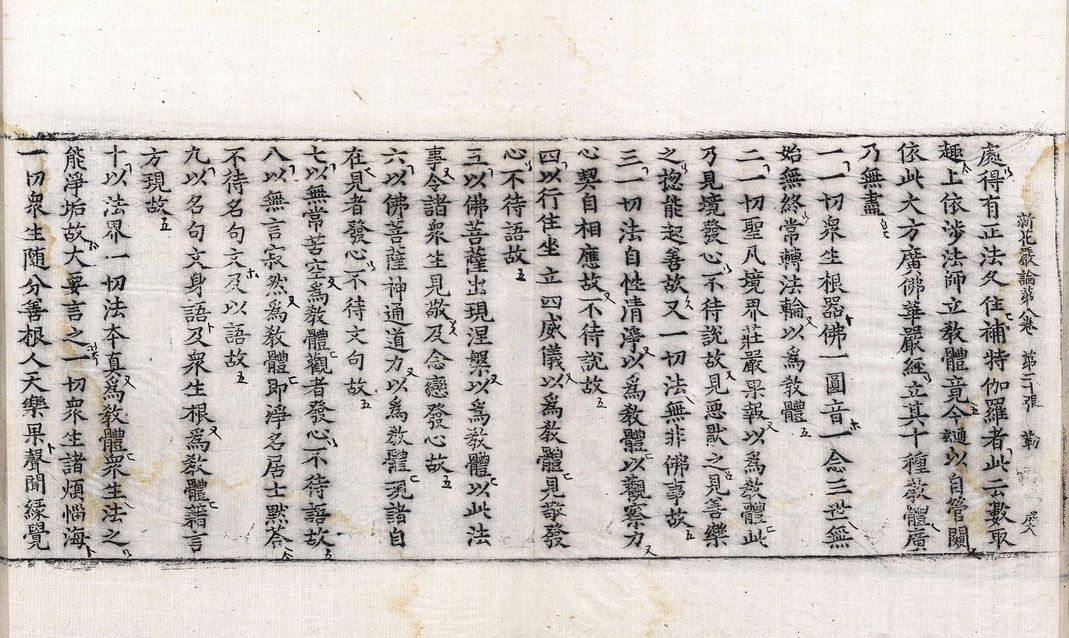 處得有正法久住補特伽羅者此云數取
趣上依涉法師立教體竟今通以自管闚
依此大方廣佛華嚴經立其十種教體廣
乃無盡
一一切衆生根器佛一圓音一念三世無
始無終常轉法輪以爲教體
二一切聖凡境界莊嚴果報以爲教體此
乃見境發心不待說故見惡猒之見善樂
之揔能起善故又一切法無非佛事故
三一切法自性清淨以爲教體以觀察力
心契自相應故不待說故
四以行住坐立四威儀以爲教體見敬發
心不待語故
五以佛菩薩出現涅槃以爲教體以此法
事令諸衆生見敬及念戀發心故
六以佛菩薩神通道力以爲教體現諸自
在見者發心不待文句故
七以無常苦空爲教體觀者發心不待語故
八以無言寂然爲教體即淨名居士默荅
不待名句文及以語故
九以名句文身語及衆生根爲教體藉言
方現故
十以法界一切法本真爲教體衆生法之
能淨垢故大要言之一切衆生諸煩惱海
一切衆生隨分善根人天樂果聲聞緣覺
新花嚴論第八卷 第二張